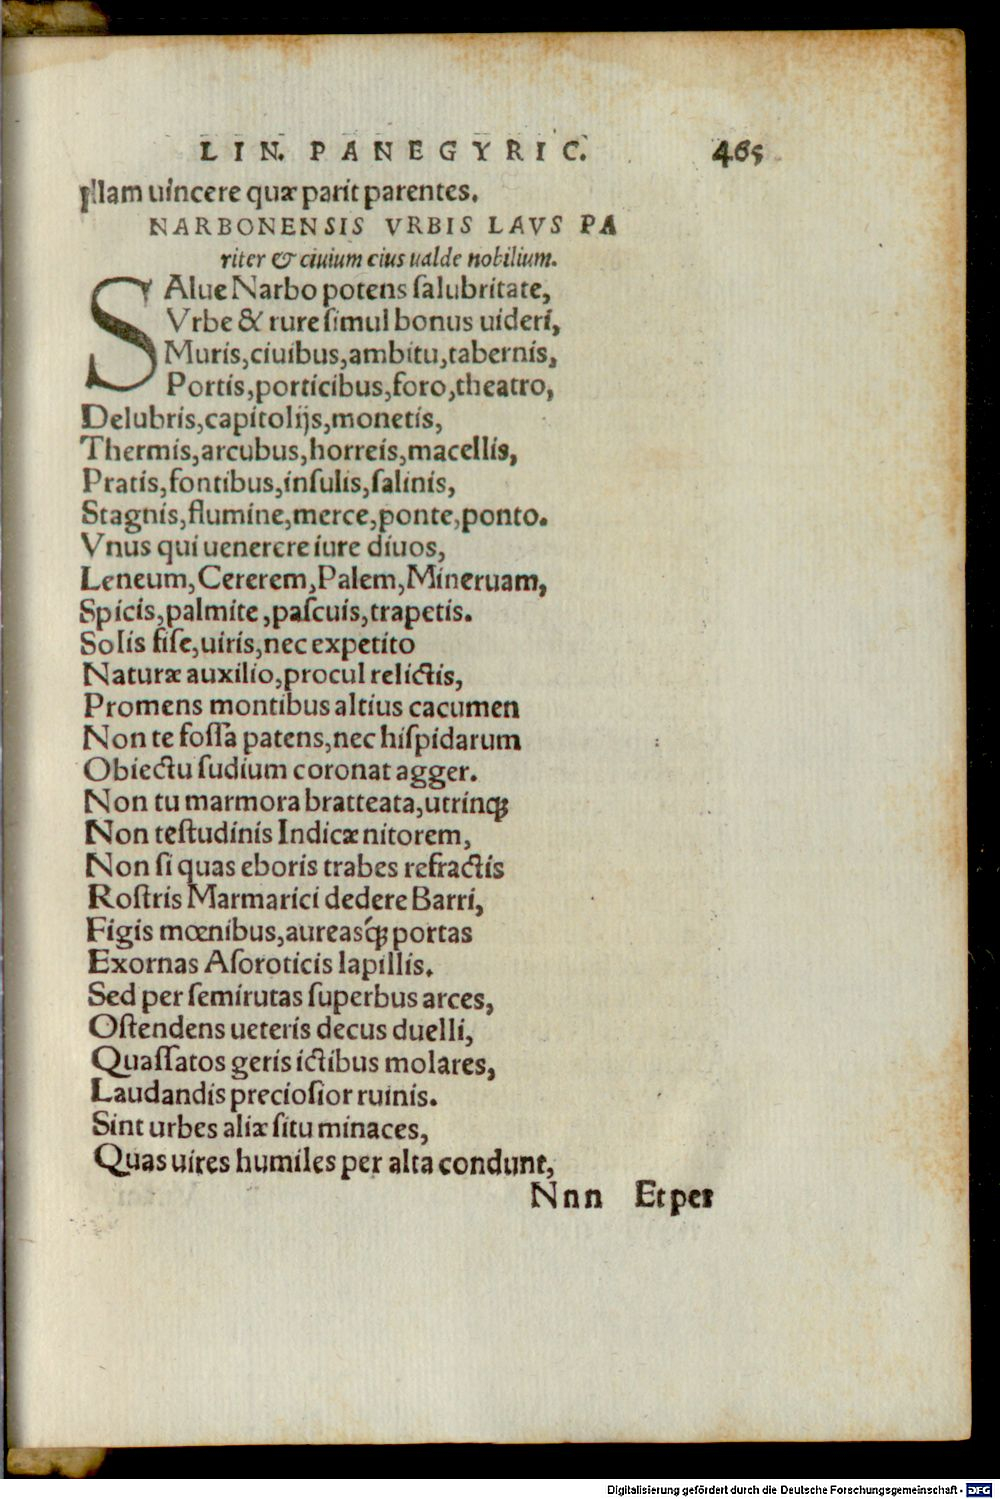 LIN. PANEGYRIC. 465
Illam uincere quæ parit parentes.
NARBONENSIS VRBIS LAVS PA
riter & ciuium eius ualde nobilium.
SAlue Narbo potens ſalubritate,
Vrbe & rure ſimul bonus uideri,
Muris,ciuibus,ambitu,tabernis,
Portis,porticibus,foro,theatro,
Delubris,capitolijs,monetis,
Thermis,arcubus,horreis,macellis,
Pratis,fontibus,inſulis,ſalinis,
Stagnis,flumine,merce,ponte,ponto.
Vnus qui uenerere iure diuos,
Leneum,Cererem,Palem,Mineruam,
Spicis,palmite,paſcuis,trapetis.
Solis fiſe,uiris,nec expetito
Naturæ auxilio,procul relictis,
Promens montibus altius cacumen
Non te foſſa patens,nec hiſpidarum
Obiectu ſudium coronat agger.
Non tu marmora bratteata,utrinqꝫ
Non teſtudinis Indicæ nitorem,
Non ſi quas eboris trabes refractis
Roſtris Marmarici dedere Barri,
Figis mœnibus,aureasq́ꝫ portas
Exornas Aſoroticis lapillis.
Sed per ſemirutas ſuperbus arces,
Oſtendens ueteris decus duelli,
Quaſſatos geris ictibus molares,
Laudandis precioſior ruinis.
Sint urbes aliæ ſitu minaces,
Quas uires humiles per alta condunt,
Nnn Et per
Digitalisierung gefördert durch die Deutsche Forschungsgemeinschaft - DFG